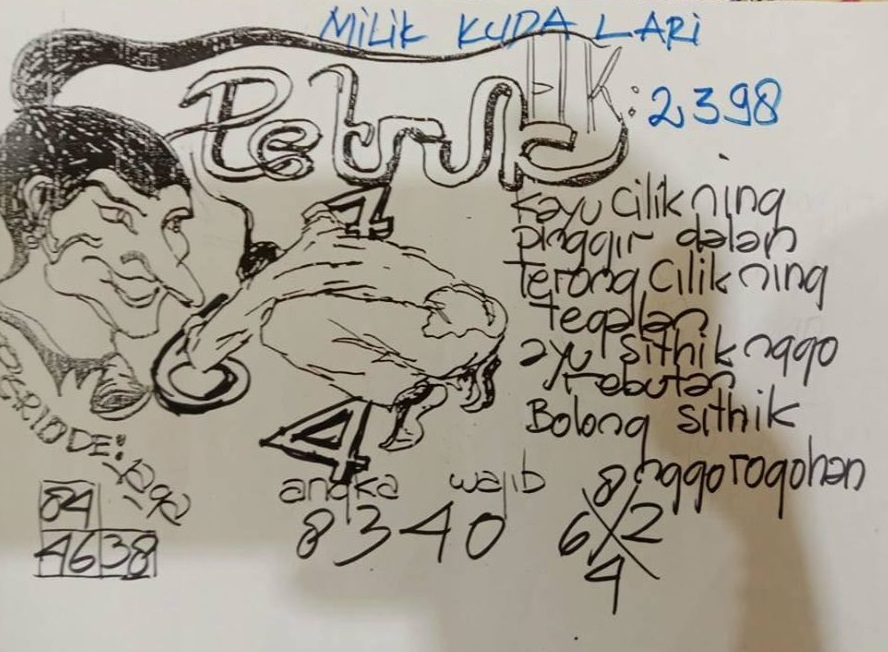 MILIK KUDA LARI
Petruk
PK: 2398
Kayu cilik ning
pinggir dalan
Terong cilik ning
tegalan
ayu sithik nggo
rebutan
Bolong sithik
nggo rogohan
1
4
PERIODE:
84
46 38
angka wajib
8340
8
6 2
4